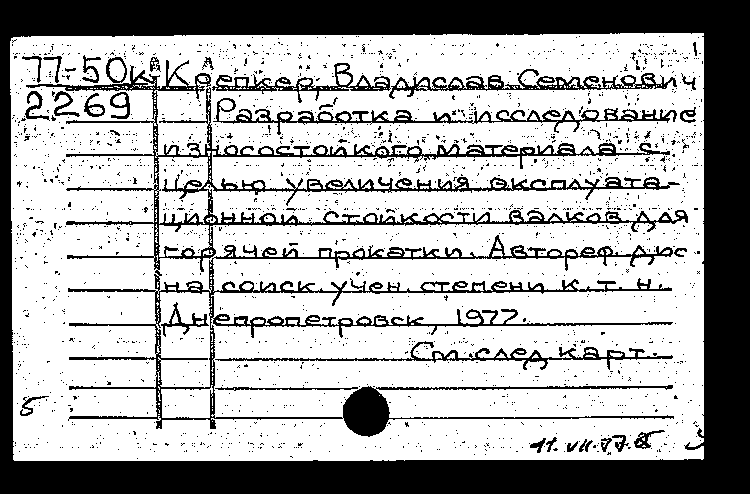 77-50к Крепкер, Владислав Семенович
2269 Разработка и исследование
износостойкого материала с
целью увеличения эксплуата-
ционной стойкости валков для
горячей прокатки. Автореф. дис
на соиск. учен. степени к. т. н.
Днепропетровск, 1977.
См. след. карт.
5
11.VII.77.